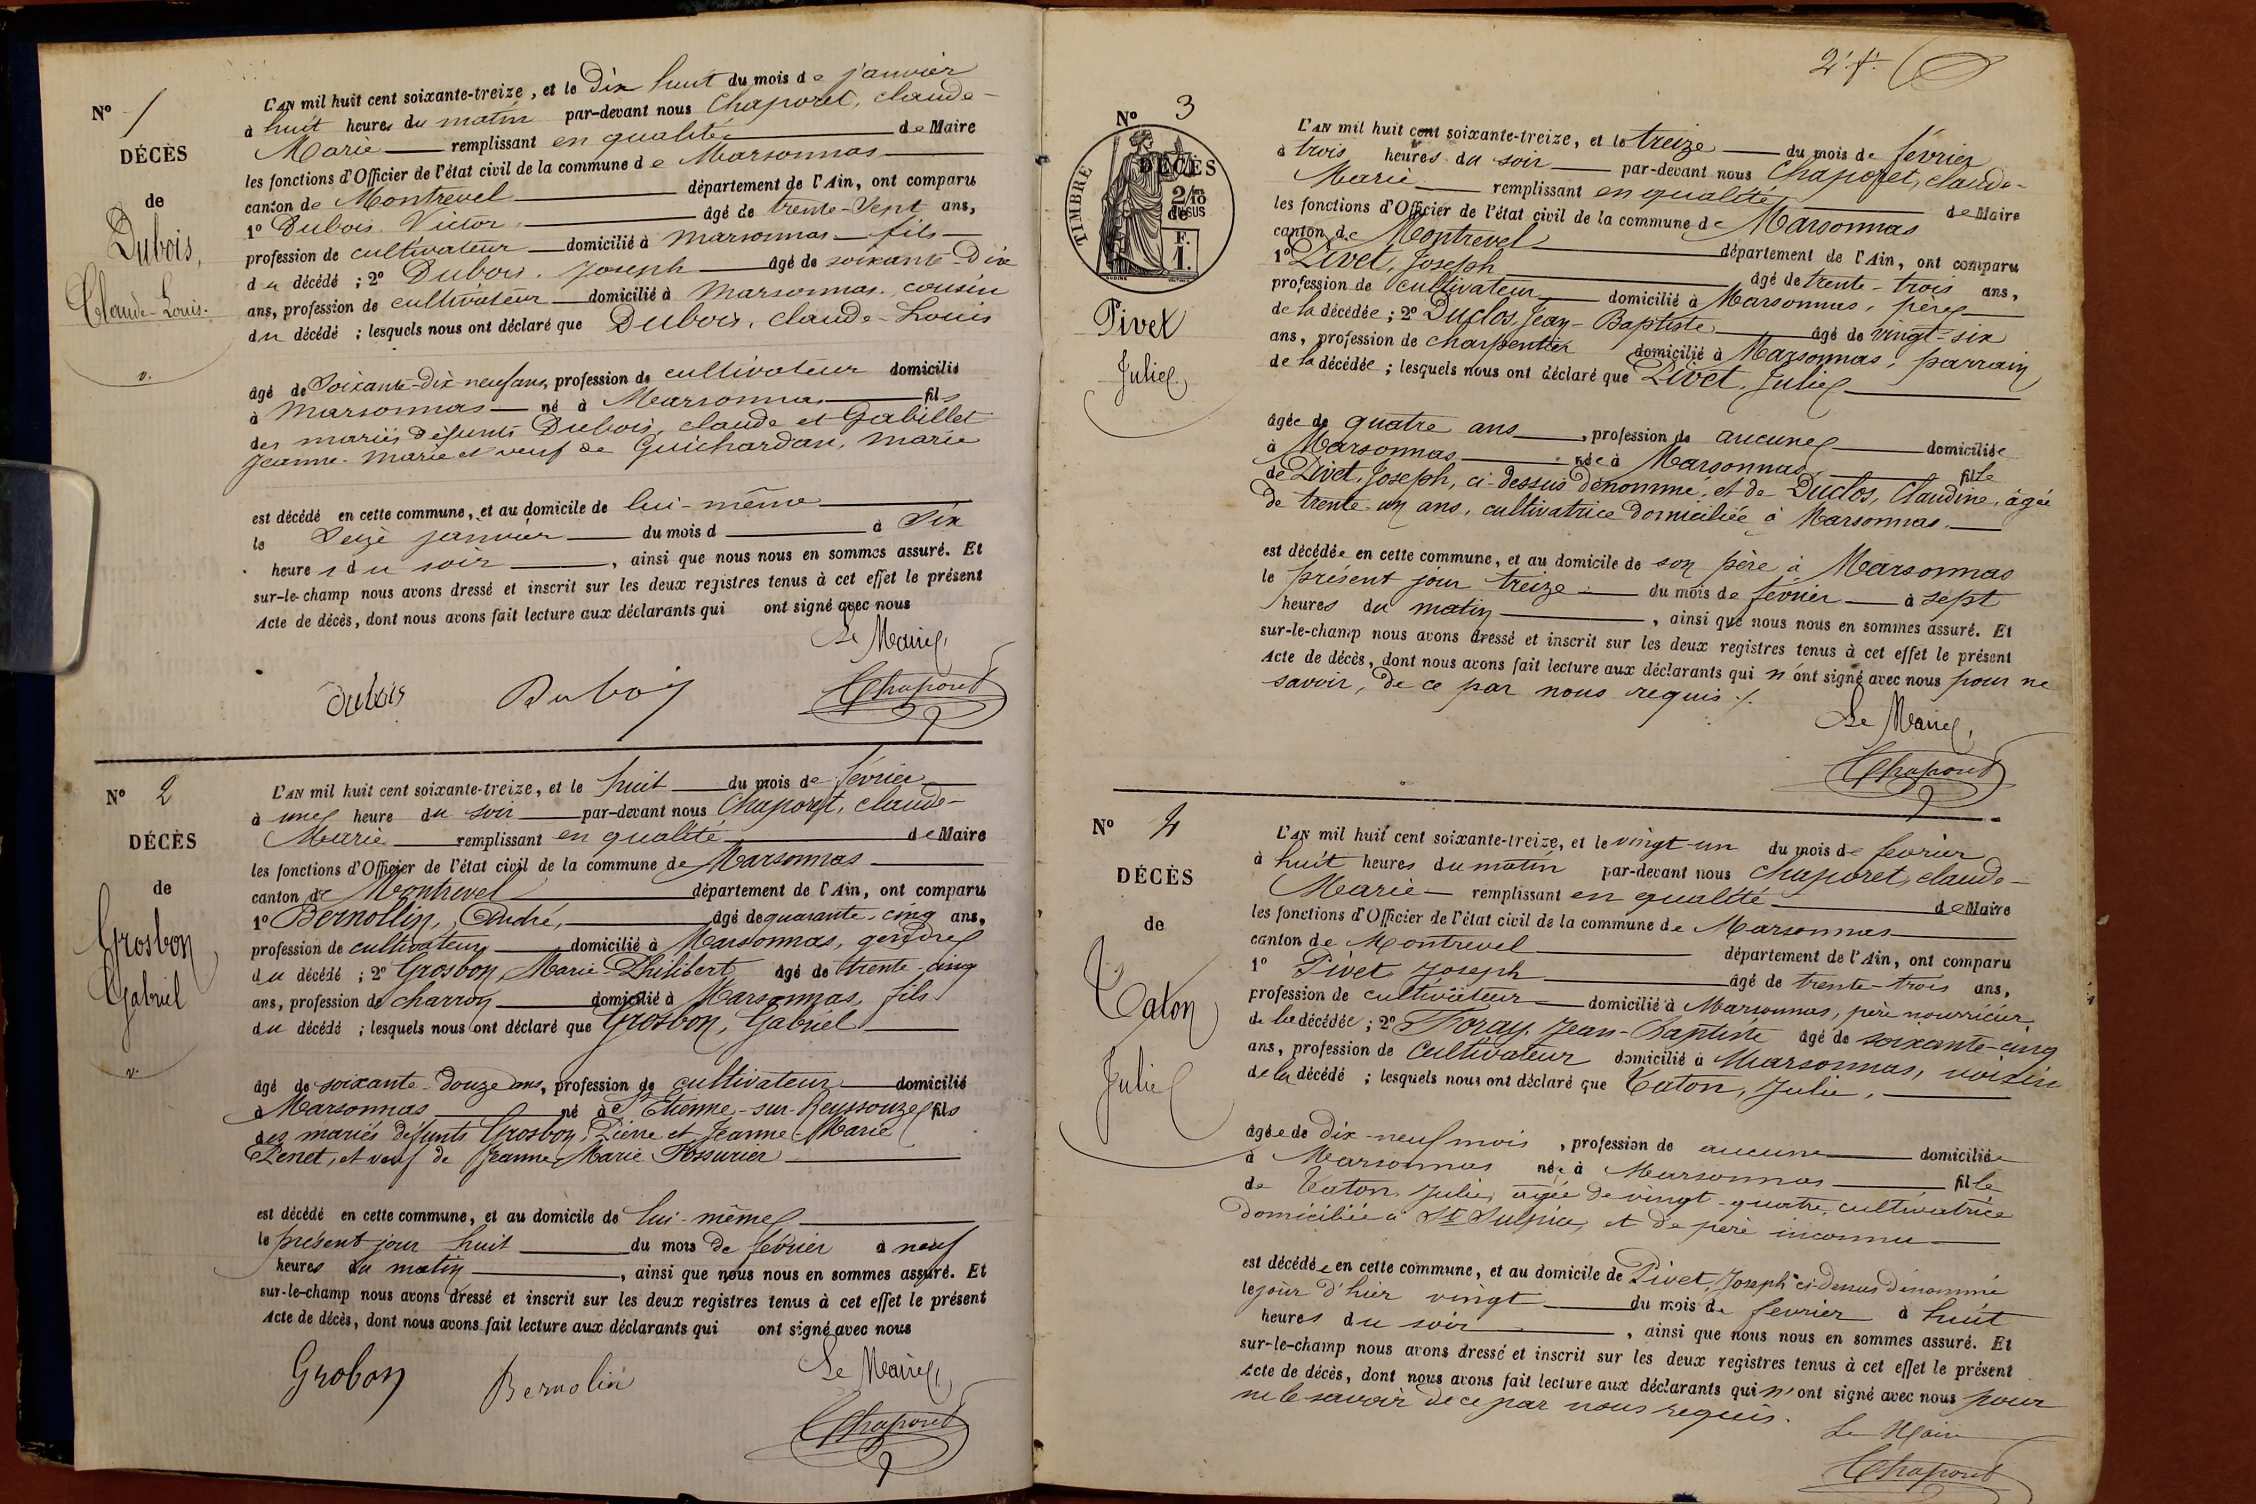 Nº 1
DÉCÈS
de
Dubois,
Claude-Louis.
v.
L'AN mil huit cent soixante-treize, et le Dix huit du mois de janvier
à huit heures du matin par-devant nous Chaporet, claude-
Marie remplissant en qualité de Maire
les fonctions d'Officier de l'état civil de la commune de Marsonnas
canton de Montrevel département de l'Ain, ont comparu
1º Dubois Victor âgé de trente-sept ans,
profession de cultivateur domicilié à Marsonnas fils
du décédé ; 2º Dubois. Joseph âgé de soixante-Dix
ans, profession de cultivateur domicilié à Marsonnas. cousin
du décédé ; lesquels nous ont déclaré que Dubois, claude-Louis
âgé de Soixante-Dix neuf ans, profession de cultivateur domicilié
à Marsonnas né à Marsonnas fils
des mariés défunts Dubois, claude et Gabillet
Jeanne-Marie et veuf de Guichardan, Marie
est décédé en cette commune, et au domicile de lui-même
le seize janvier du mois d à Six
heures du soir, ainsi que nous nous en sommes assuré. Et
sur-le-champ nous avons dressé et inscrit sur les deux registres tenus à cet effet le présent
Acte de décès, dont nous avons fait lecture aux déclarants qui ont signé avec nous
Le Maire,
Dubois Duboy Chaporet
Nº 2
DÉCÈS
de
Grosbon
Gabriel
v.
L'AN mil huit cent soixante-treize, et le huit du mois de février
à une heure du soir par-devant nous Chaporet, claude-
Marie remplissant en qualité de Maire
les fonctions d'Officier de l'état civil de la commune de Marsonnas
canton de Montrevel département de l'Ain, ont comparu
1º Bernollin, André, âgé de quarante-cinq ans,
profession de cultivateur domicilié à Marsonnas, gendre
du décédé ; 2º Grosbon Marie Philibert âgé de trente-cinq
ans, profession de charron domicilié à Marsonnas, fils
du décédé ; lesquels nous ont déclaré que Grosbon, Gabriel
âgé de soixante-douze ans, profession de cultivateur domicilié
à Marsonnas né à St Etienne-sur-Reyssouze fils
des mariés défunts Grosbon, Pierre et Jeanne Marie
Penet, et veuf de Jeanne Marie
est décédé en cette commune, et au domicile de lui-même
le présent jour huit du mois de février à neuf
heures du matin, ainsi que nous nous en sommes assuré. Et
sur-le-champ nous avons dressé et inscrit sur les deux registres tenus à cet effet le présent
Acte de décès, dont nous avons fait lecture aux déclarants qui ont signé avec nous
Le Maire,
Grobon Bernolin Chaporet
2. f.
Nº 3
DÉCÈS
de
TIMBRE
2/10
EN SUS
F.
1.
Pivet
Julie
L'AN mil huit cent soixante-treize, et le treize du mois de février
à trois heures du soir par-devant nous Chaporet, claude-
Marie remplissant en qualité de Maire
les fonctions d'Officier de l'état civil de la commune de Marsonnas
canton de Montrevel département de l'Ain, ont comparu
1º Pivet, Joseph âgé de trente-trois ans,
profession de cultivateur domicilié à Marsonnas, père
de la décédée ; 2º Duclos, Jean-Baptiste âgé de vingt-six
ans, profession de charpentier domicilié à Marsonnas, parrain
de la décédée ; lesquels nous ont déclaré que Pivet, Julie
âgée de quatre ans, profession de aucune domiciliée
à Marsonnas née à Marsonnas fille
de Pivet, Joseph, ci-dessus dénommé, et de Duclos, Claudine, âgée
de trente-un ans, cultivatrice domiciliée à Marsonnas.
est décédée en cette commune, et au domicile de son père à Marsonnas
le présent jour treize du mois de février à sept
heures du matin, ainsi que nous nous en sommes assuré. Et
sur-le-champ nous avons dressé et inscrit sur les deux registres tenus à cet effet le présent
Acte de décès, dont nous avons fait lecture aux déclarants qui n'ont signé avec nous pour ne
savoir, de ce par nous requis ./.
Le Maire,
Chaporet
Nº 4
DÉCÈS
de
Caton
Julie
L'AN mil huit cent soixante-treize, et le vingt-un du mois de février
à huit heures du matin par-devant nous Chaporet, claude-
Marie remplissant en qualité de Maire
les fonctions d'Officier de l'état civil de la commune de Marsonnas
canton de Montrevel département de l'Ain, ont comparu
1º Pivet Joseph âgé de trente-trois ans,
profession de cultivateur domicilié à Marsonnas, père nourricier
de la décédée ; 2º Foray, Jean-Baptiste âgé de soixante-cinq
ans, profession de Cultivateur domicilié à Marsonnas, voisin
de la décédé ; lesquels nous ont déclaré que Caton, Julie,
âgée de dix-neuf mois, profession de aucune domiciliée
à Marsonnas née à Marsonnas fille
de Caton Julie, âgée de vingt-quatre, cultivatrice
domiciliée à St Sulpice, et de père inconnu
est décédée en cette commune, et au domicile de Pivet, Joseph ci-dessus dénommé
le jour d'hier vingt du mois de fevrier à huit
heures du soir, ainsi que nous nous en sommes assuré. Et
sur-le-champ nous avons dressé et inscrit sur les deux registres tenus à cet effet le présent
Acte de décès, dont nous avons fait lecture aux déclarants qui n'ont signé avec nous pour
ne le savoir de ce par nous requis.
Le Maire
Chaporet